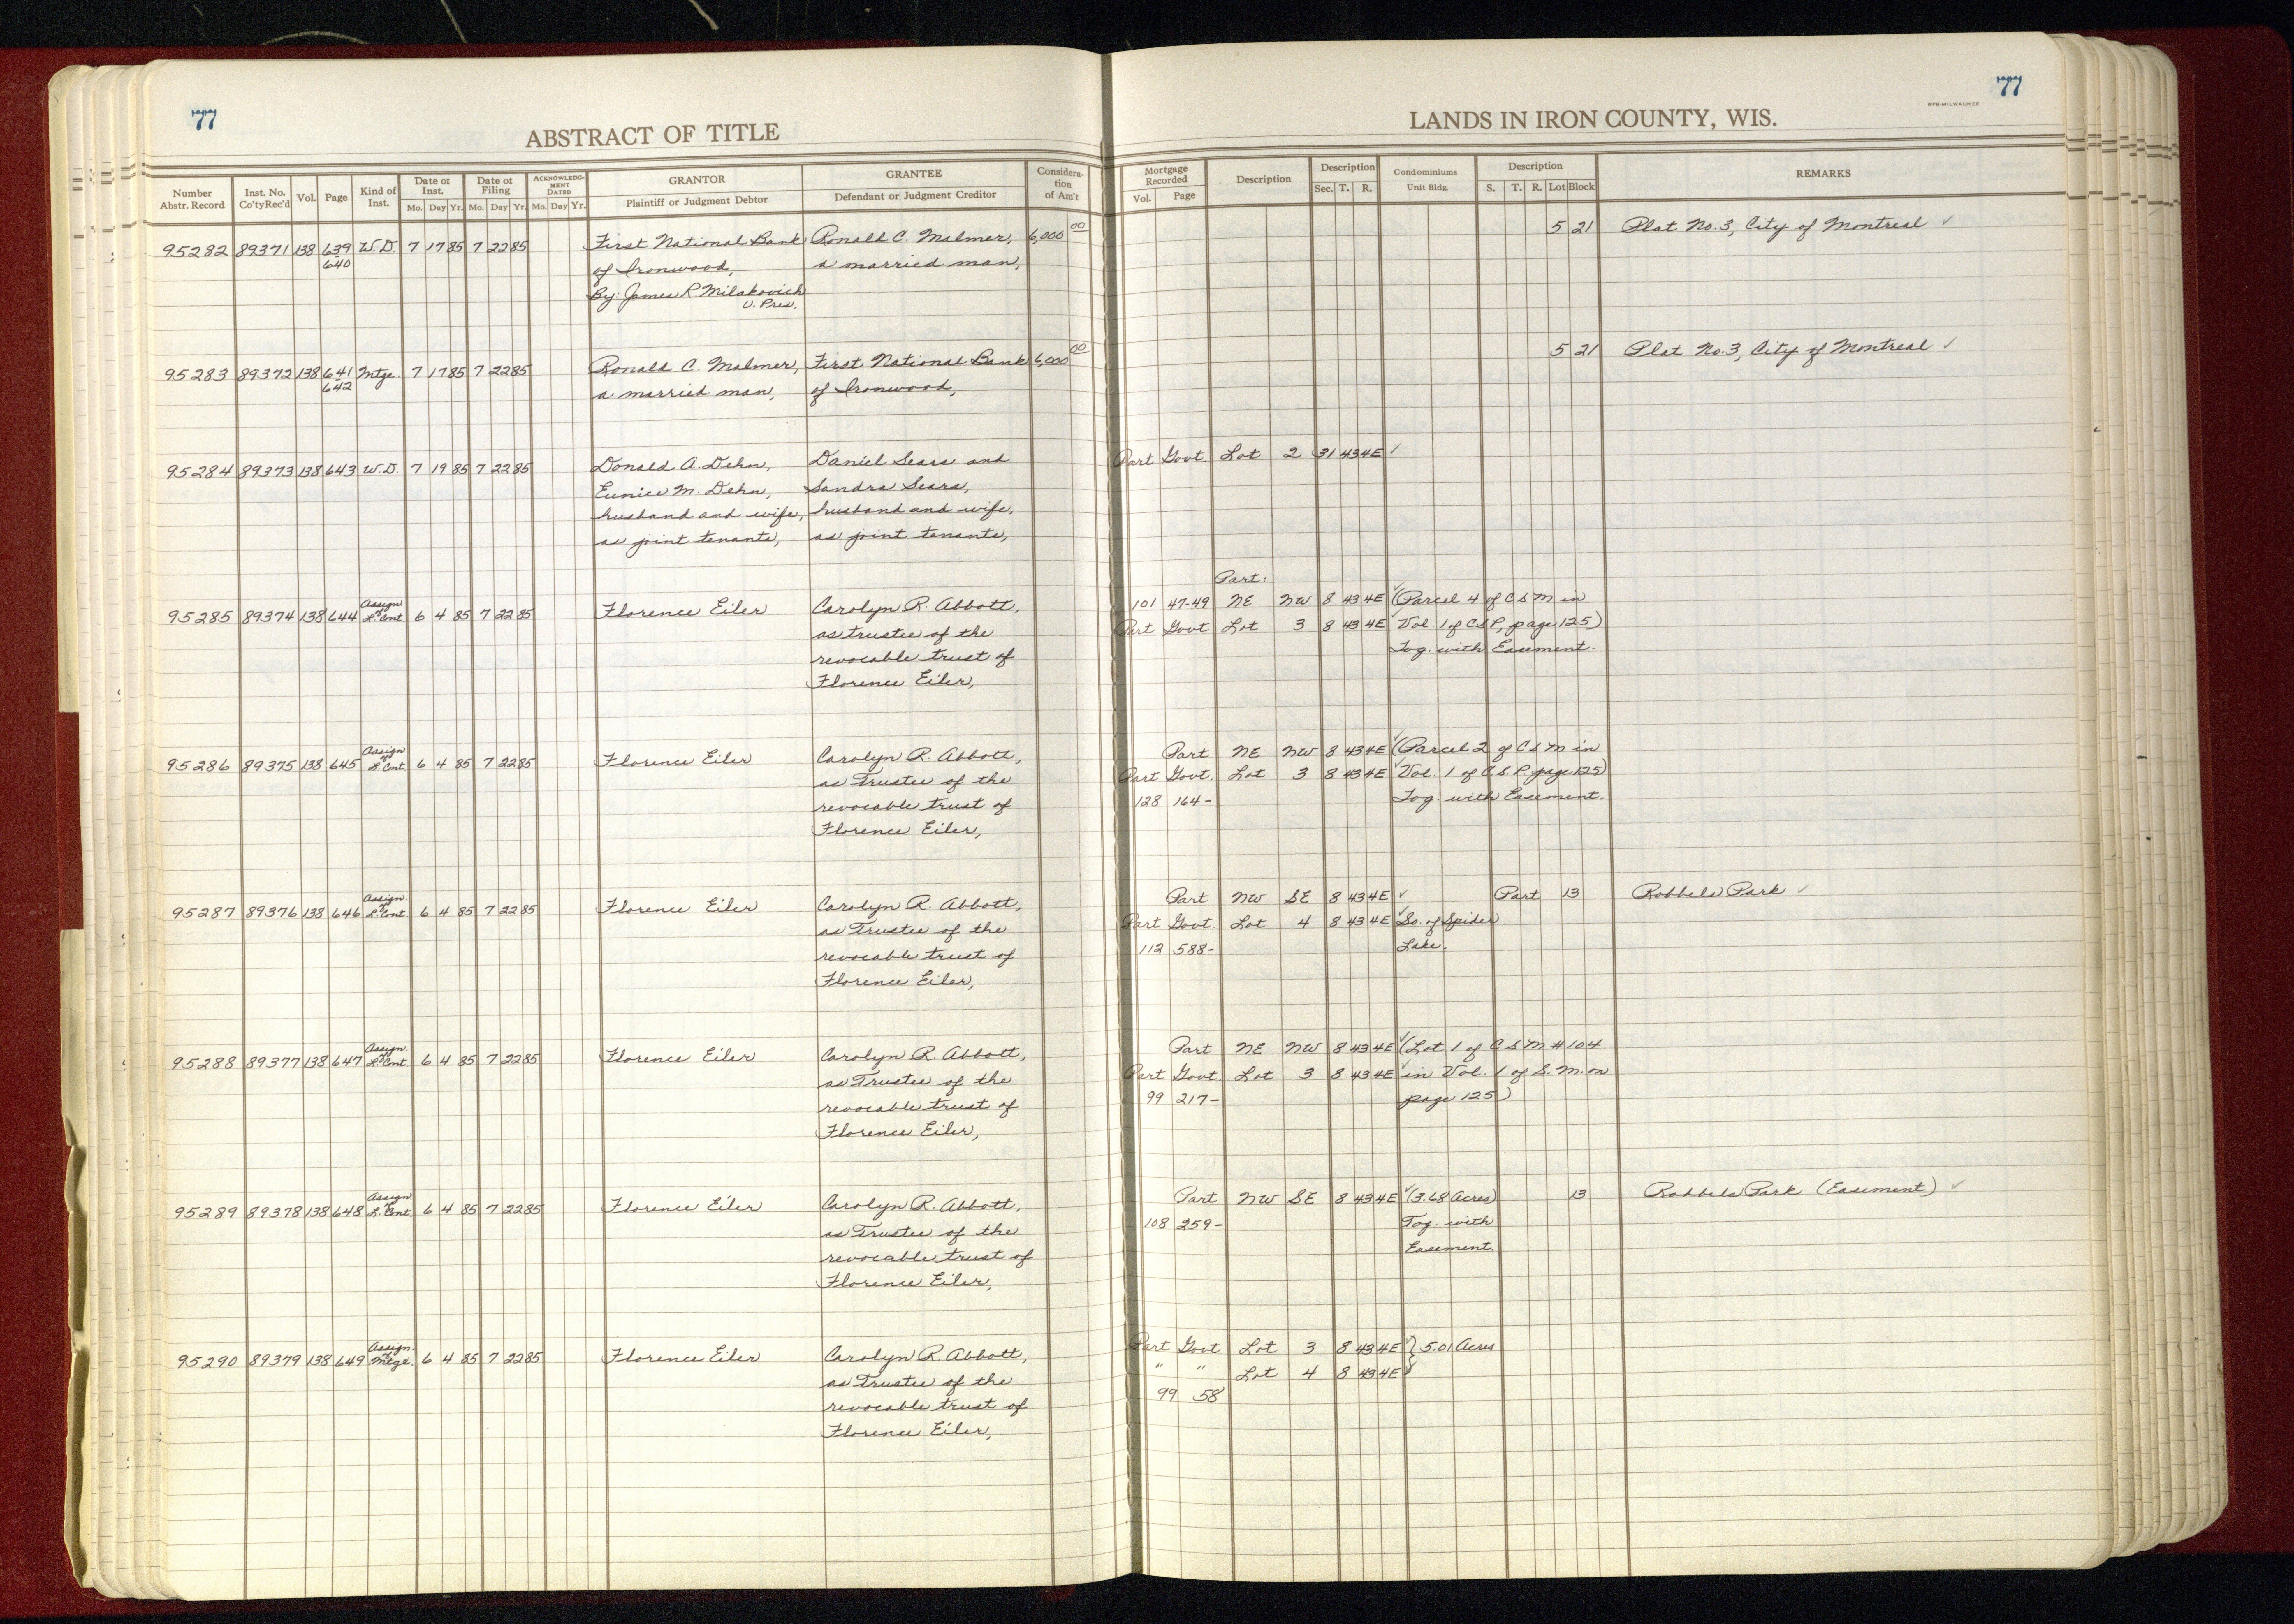 77
ABSTRACT OF TITLE
Number Abstr. Record
Inst. No. Co'ty Rec'd
Vol.
Page
Kind of Inst.
Date of Inst.
Mo. Day Yr.
Date of Filing
Mo. Day Yr.
ACKNOWLEDG-MENT DATED
Mo. Day Yr.
GRANTOR
Plaintiff or Judgment Debtor
GRANTEE
Defendant or Judgment Creditor
Considera-tion of Am't
95282 89371 138 639 W.D. 7 17 85 7 22 85 First National Bank Ronald C. Malmer, 6,000 00
640 of Ironwood, a married man,
By: James R. Milakovich
V. Pres.
95283 89372 138 641 Mtge. 7 17 85 7 22 85 Ronald C. Malmer, First National Bank 6,000 00
642 a married man, of Ironwood,
95284 89373 138 643 W.D. 7 19 85 7 22 85 Donald A. Dehn, Daniel Sears and
Eunice M. Dehn, Sandra Sears,
husband and wife, husband and wife,
as joint tenants, as joint tenants,
95285 89374 138 644 Assign of L. Cont 6 4 85 7 22 85 Florence Eiler Carolyn R. Abbott,
as trustee of the
revocable trust of
Florence Eiler,
95286 89375 138 645 Assign of L. Cont. 6 4 85 7 22 85 Florence Eiler Carolyn R. Abbott,
as Trustee of the
revocable trust of
Florence Eiler,
95287 89376 138 646 Assign. of L. Cont. 6 4 85 7 22 85 Florence Eiler Carolyn R. Abbott,
as Trustee of the
revocable trust of
Florence Eiler,
95288 89377 138 647 Assign. of L. Cont. 6 4 85 7 22 85 Florence Eiler Carolyn R. Abbott,
as Trustee of the
revocable trust of
Florence Eiler,
95289 89378 138 648 Assign of L. Cont. 6 4 85 7 22 85 Florence Eiler Carolyn R. Abbott,
as Trustee of the
revocable trust of
Florence Eiler,
95290 89379 138 649 Assign. of Mtge. 6 4 85 7 22 85 Florence Eiler Carolyn R. Abbott,
as Trustee of the
revocable trust of
Florence Eiler,
77
WPB-MILWAUKEE
LANDS IN IRON COUNTY, WIS.
Mortgage Recorded
Vol. Page
Description
Description
Sec. T. R.
Condominiums
Unit Bldg.
Description
S. T. R. Lot Block
REMARKS
5 21 Plat No. 3, City of Montreal ✓
5 21 Plat No. 3, City of Montreal ✓
Part Govt. Lot 2 31 43 4E ✓
Part:
101 47-49 NE NW 8 43 4E ✓ (Parcel 4 of C S M in
Part Govt Lot 3 8 43 4E ✓ Vol. 1 of C S P, page 125)
Tog. with Easement.
Part NE NW 8 43 4E ✓ (Parcel 2 of C S M in
Part Govt. Lot 3 8 43 4E ✓ Vol. 1 of C. S. P. page 125)
128 164- Tog. with Easement.
Part NW SE 8 43 4E ✓ Part 13 Robbels Park ✓
Part Govt Lot 4 8 43 4E ✓ So. of Spider
112 588- Lake.
Part NE NW 8 43 4E ✓ (Lot 1 of C S M #104
Part Govt. Lot 3 8 43 4E ✓ in Vol. 1 of S. M. on
99 217- page 125)
Part NW SE 8 43 4E ✓ (3.68 Acres) 13 Robbels Park (Easement) ✓
108 259- Tog. with
Easement.
Part Govt Lot 3 8 43 4E ✓ } 5.01 Acres
" " Lot 4 8 43 4E ✓
99 58